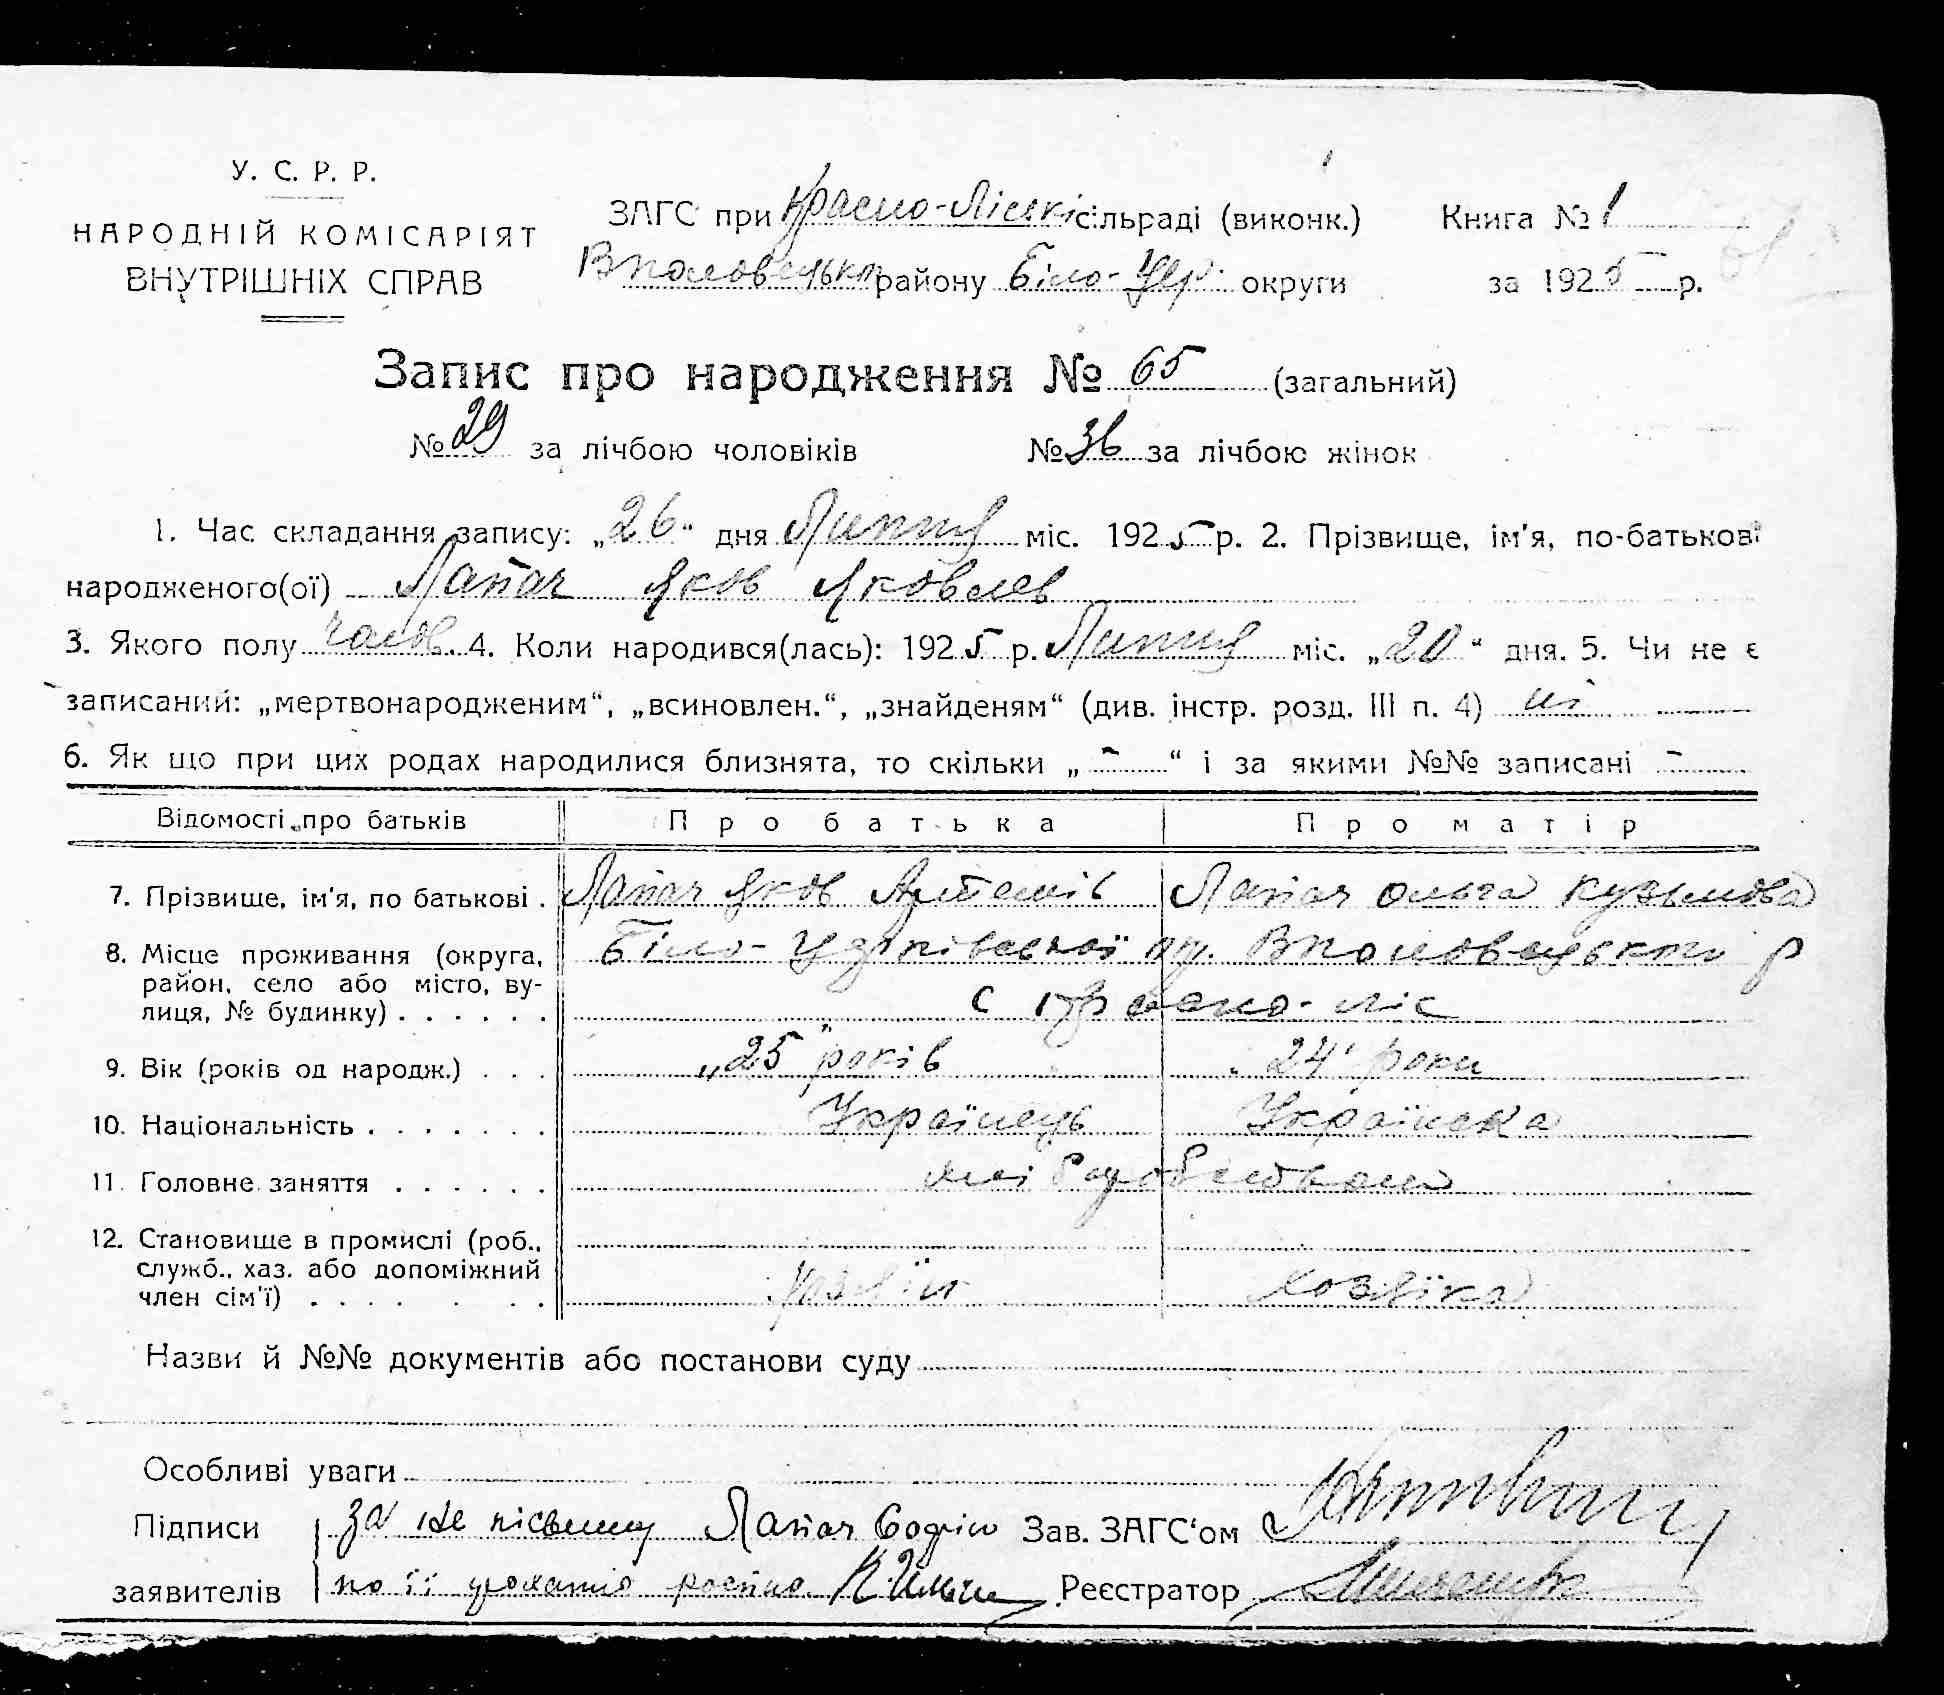 У. С. Р. Р.
НАРОДНІЙ КОМІСАРІЯТ
ВНУТРІШНІХ СПРАВ
ЗАГС при Красно-Ліській сільраді (виконк.) Книга № 1
В половецького району Біло-Цер. округи за 1925 р.
Запис про народження № 65 (загальний)
№ 29 за лічбою чоловіків № 36 за лічбою жінок
1. Час складання запису: „26“ дня Липня міс. 1925 р. 2. Прізвище, ім'я, по-батькові
народженого(ої) Лапач Яков Яковлев
3. Якого полу чолов. 4. Коли народився(лась): 1925 р. Липня міс. „20“ дня. 5. Чи не є
записаний: „мертвонародженим“, „всиновлен.“, „знайденям“ (див. інстр. розд. III п. 4) ні
6. Як що при цих родах народилися близнята, то скільки „ - “ і за якими №№ записані -
Відомості про батьків Про батька Про матір
7. Прізвище, ім'я, по батькові . Лапач Яков Артемів Лапач Ольга Кузьмова
8. Місце проживання (округа, Біло-Церківської окр. Вполовецького р
район, село або місто, ву-
лиця, № будинку) . . . . . . с Красно-ліс
9. Вік (років од народж.) . . . „25“ років 24 роки
10. Національність . . . . . . . Українець Українска
11. Головне заняття . . . . . .
12. Становище в промислі (роб.,
служб., хаз. або допоміжний
член сім'ї) . . . . . . . хозяїн хозяїка
Назви й №№ документів або постанови суду
Особливі уваги
Підписи за не письмену Лапач Софію Зав. ЗАГС'ом
заявителів по її проханю Реєстратор